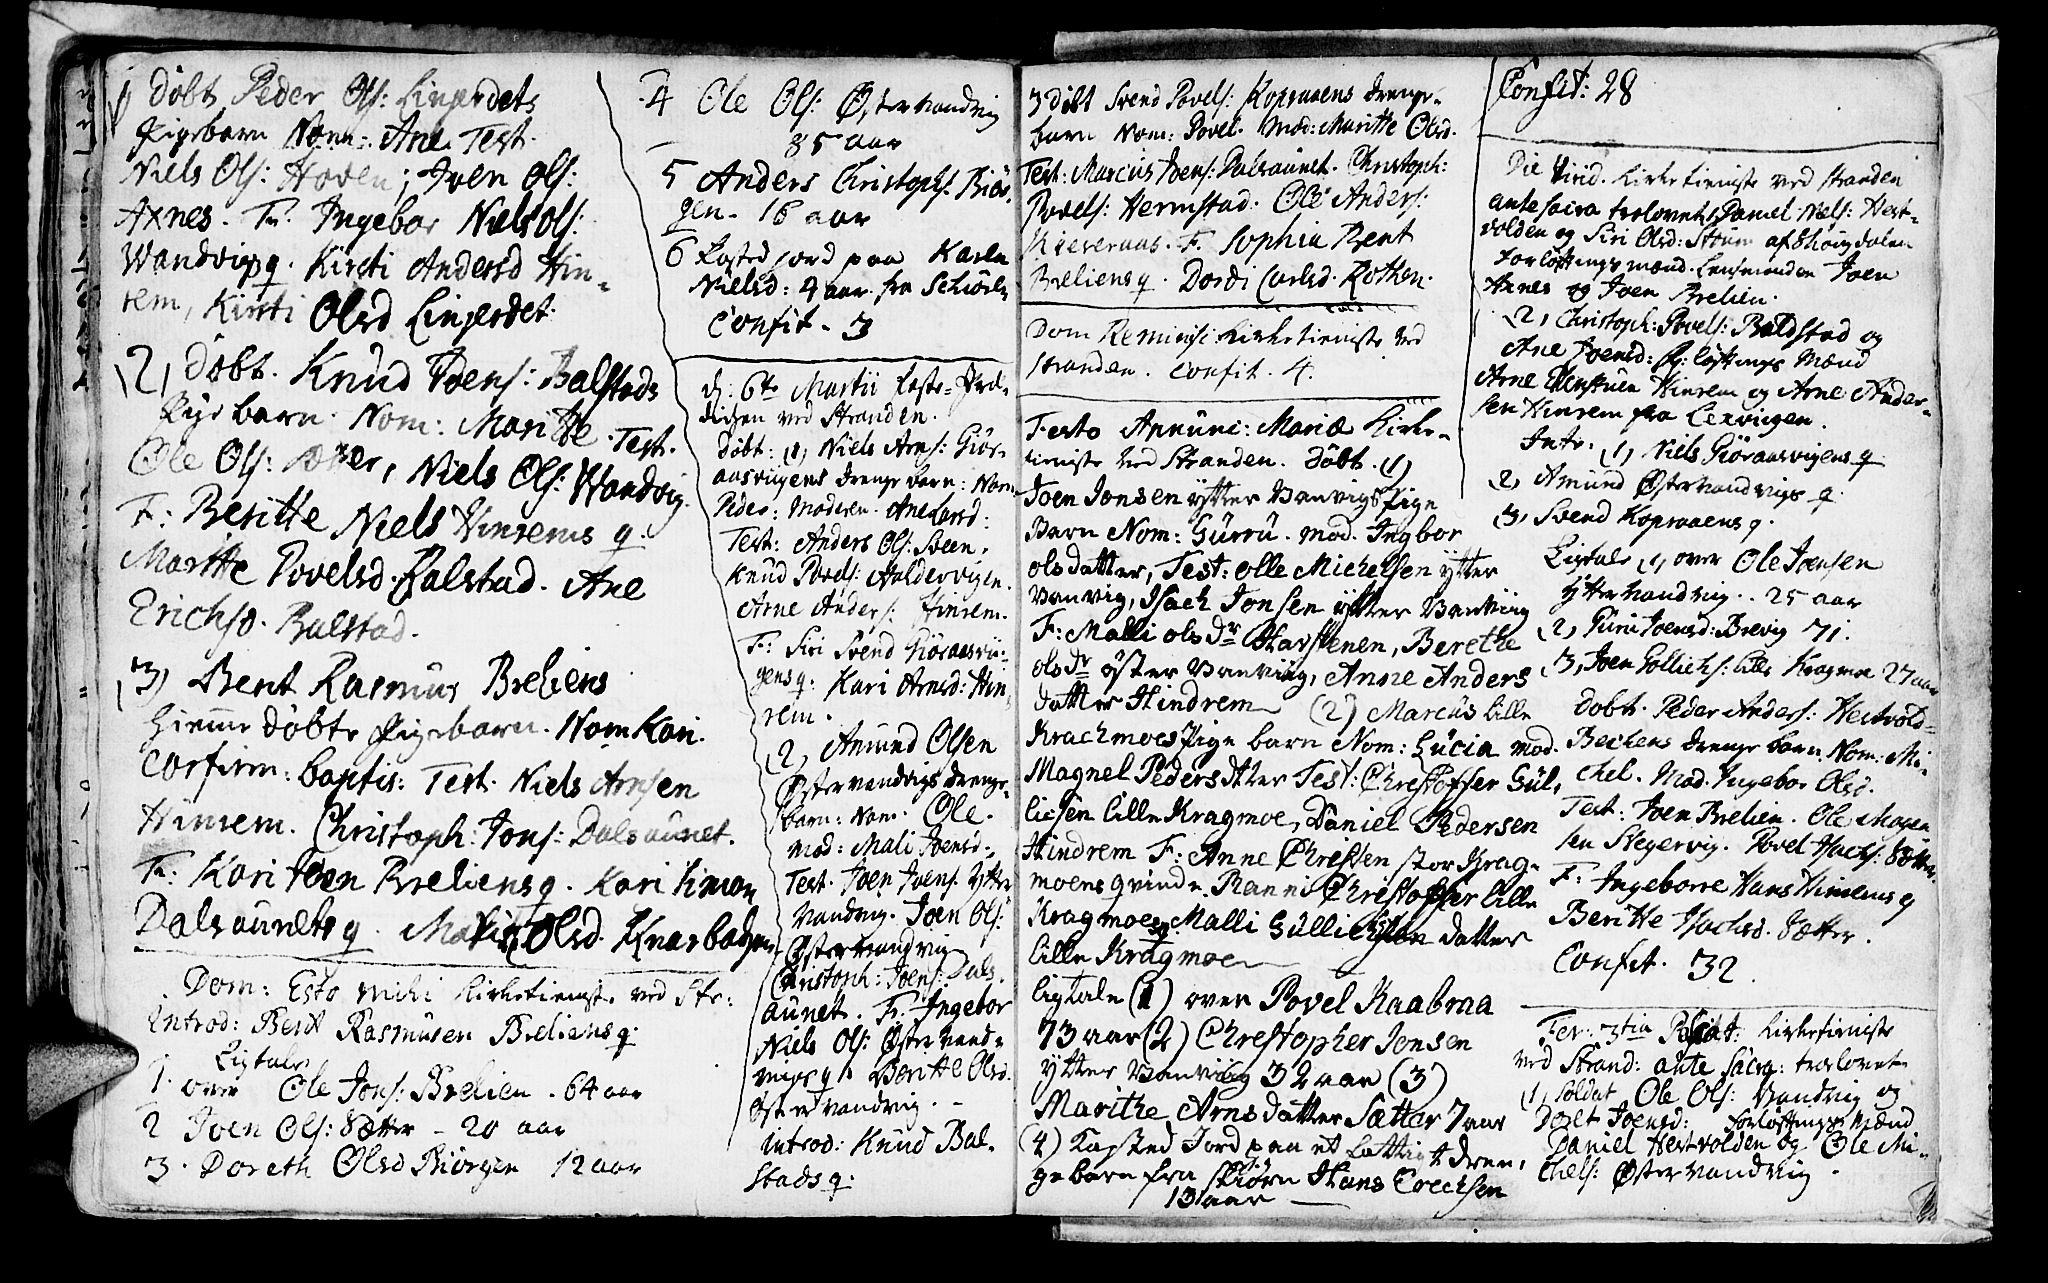 Döbt Peder Ols: Lingerdets
Pigebarn Nom: Ane Test.
Niels Ols: Hoven; Joen Ols:
Axnes. Fr. Ingebor Niels Ols:
Wandvigs q. Kirsti Andersd Hin-
rem, Kirsti Olsd Lingerdet.
2, Döbt. Knud Joens: Balstads
Pige barn. Nom: Maritte. Test.
Ole Ols: Sætter, Niels Ols: Wandvig.
F: Beritte Niels Hinrems q.
Maritte Povelsd. Balstad. Ane
Erichsd. Balstad.
3, Bent Rasmus Breliens
hiemme döbte Pigebarn. Nom Kari.
Confirm: baptis: Test. Niels Arnsen
Hinrem. Christoph: Jons: Dalsaunet.
Fr: Kari Joen Breliens q. Kari Simon
Dalsaunets q. Olsd. Knarbakken
Dom: Esto mihi Kirketieniste ved Str:
Introd: Berit Rasmusen Breliens q.
Ligtale
1. over Ole Jons: Brelien. 64 aar
2 Joen Ols: Sætter - 20 aar
3. Doreth Olsd Biörgen 12 aar
4 Ole Ols: Östervandvig
85 aar
5 Anders Christophs: Biör-
gen - 16 aar
6 Kasted jord paa Karen
Nielsd: 4 aar fra Schiörn
Confit - 3
d: 6te Martii Faste-Præd-
dichen ved Stranden.
Döbt: (1) Niels Arns: Giör-
aasvigens drenge barn: Nom
Peder: Moderen. Ane Larsd:
Test: Anders Ols: Steen,
Knud Povels: Holdervigen.
Arne Anders: Hinrem.
F: Siri Svend Giöraasvi-
gens q: Kari Arnsd: Hin-
rem.
2, Amund Olsen
Östervandvigs drenge-
barn: Nom. Ole.
mod: Mali Joensd:
Test. Joen Joens. Ytter
Vandvig. Joen Ols:
Östervandvig
Christoph: Joens: Dals-
aunet. Fr: Ingebor
Niels Ols: Östervand-
vigs q. Beritte Olsd.
Östervandvig.
introd: Knud Bal-
stads q.
3 döbt Svend Povels: Kopraaens drenge-
barn Nom: Povel. Mod: Maritte Olsd.
Test: Marcus Joens: Dalsaunet. Christoph:
Povels: Hermstad. Ole Anders:
F. Sophia Bent
Breliens q. Dordi Carlsd. Rothen.
Dom Reminis: Kirketieniste ved
Stranden. Confit. 4.
Festo Annunc: Mariæ Kirke-
tieniste ved Stranden. Döbt. (1)
Joen Jonsen ytter Vanvigs Pige
Barn Nom: Gurru. mod. Ingbor
olsdatter, Test: olle Michelsen ytter
Vanvig, Isach Jonsen ytter Vanviig
F: Malli ols Dr Havstenen, Berethe
ols Dr öster Vanviig, Anne Anders
datter Hindrem (2) Marcus lille
Krachmoes Pige barn Nom: Lucia mod.
Magnel Pedersdtter Test: Christoffer Gul,
licsen lille Kragmoe, Daniel Pedersen
Hindrem F: Anne Christen stor Krag-
moens qvinde. Ranni Christoffer lille
Kragmoes Malli Gulli datter
lille Kragmoe
ligtale (1) over Povel Kaabraa
73 aar (2) Christopher Jonsen
ytter Vanviig 32 aar (3)
Marithe Arnsdatter Sætter 7 aar
(4) Kasted Jord paa et fattigt dren,
gebarn fra Skiörn Hans Erecksen
13 aar
Confit: 28
Die Virid. Kirketieniste ved Stranden
ante sacra trolovet Daniel Niels: Hest-
volden og Siri Olsd: Stöum af
Forlöftings mænd. Lensmanden Joen
Axnes og Joen Brelien.
2, Christoph: Povels: Baldstad og
Ane Joensd: forlöftings Mænd
Arne Hinrem og Arne Ander-
sen Hinrem fra Lexvigen.
Intr. (1) Niels Giöraasvigens q
2, Amund Östervandvigs q.
3, Svend Kopraaens q.
Ligtale 1, over Ole Joensen
Yttervandvig.. 25 aar
2, Guru Joensd: Brevig 71.
3, Joen Gollichs: lille Kragmoe 27 aar
Döbt. Peder Anders: Hestvold-
Bechens drenge barn. Nom: Mi-
chel. Mod. Ingebor Olsd.
Test. Joen Brelien. Ole Mogen-
sen Stegervig. Povel Isachs: Sætter.
F: Ingeborre Hans Hinrems q
Beritte Isachsd. Sætter.
Confit. 32
Fer: 3tia Paschat: Kirketieniste
ved Strand: ante sacra: trolovet
(1) Soldat Ole Ols: Vandvig og
Dort Joensd: forlöftings Mænd
Daniel Hestvolden og Ole Mi-
chels: Östervandvig.